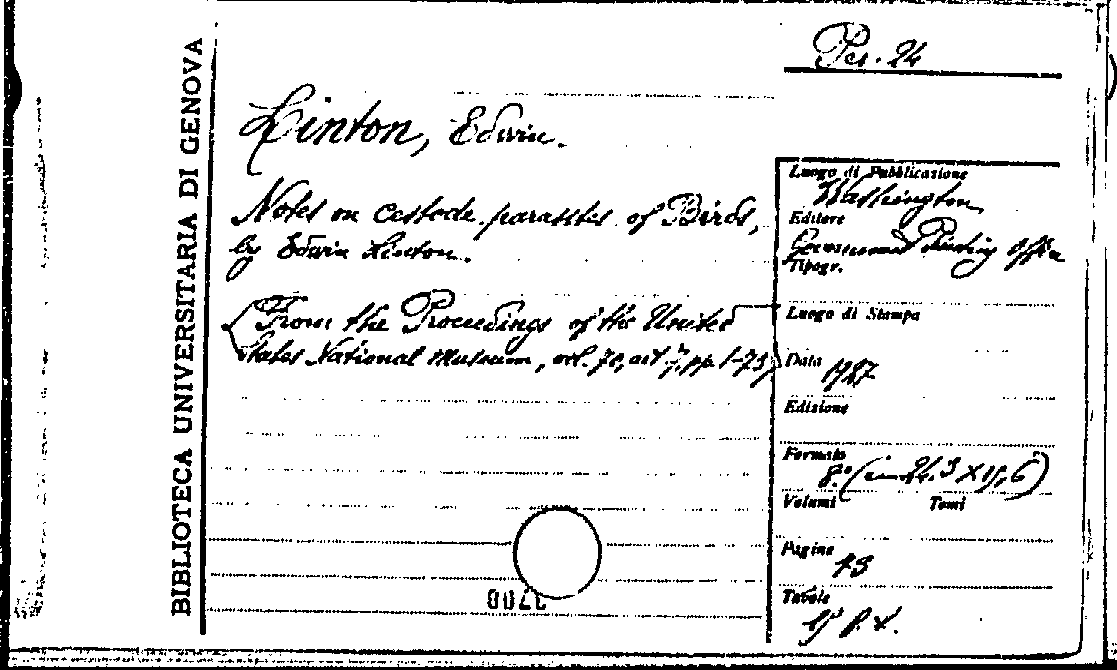 BIBLIOTECA UNIVERSITARIA DI GENOVA
Per. 24
Linton, Edwin.
Notes on cestode parasites of Birds,
by Edwin Linton.
(From the Proceedings of the United
States National Museum, vol. 70, art 7, pp. 1-73)
Luogo di Pubblicazione
Washington
Editore
Government Printing Office
Tipogr.
Luogo di Stampa
Data
1927
Edizione
Formato
8.° (cm 24.3 X 15,6)
Volumi Tomi
Pagine
73
Tavole
15